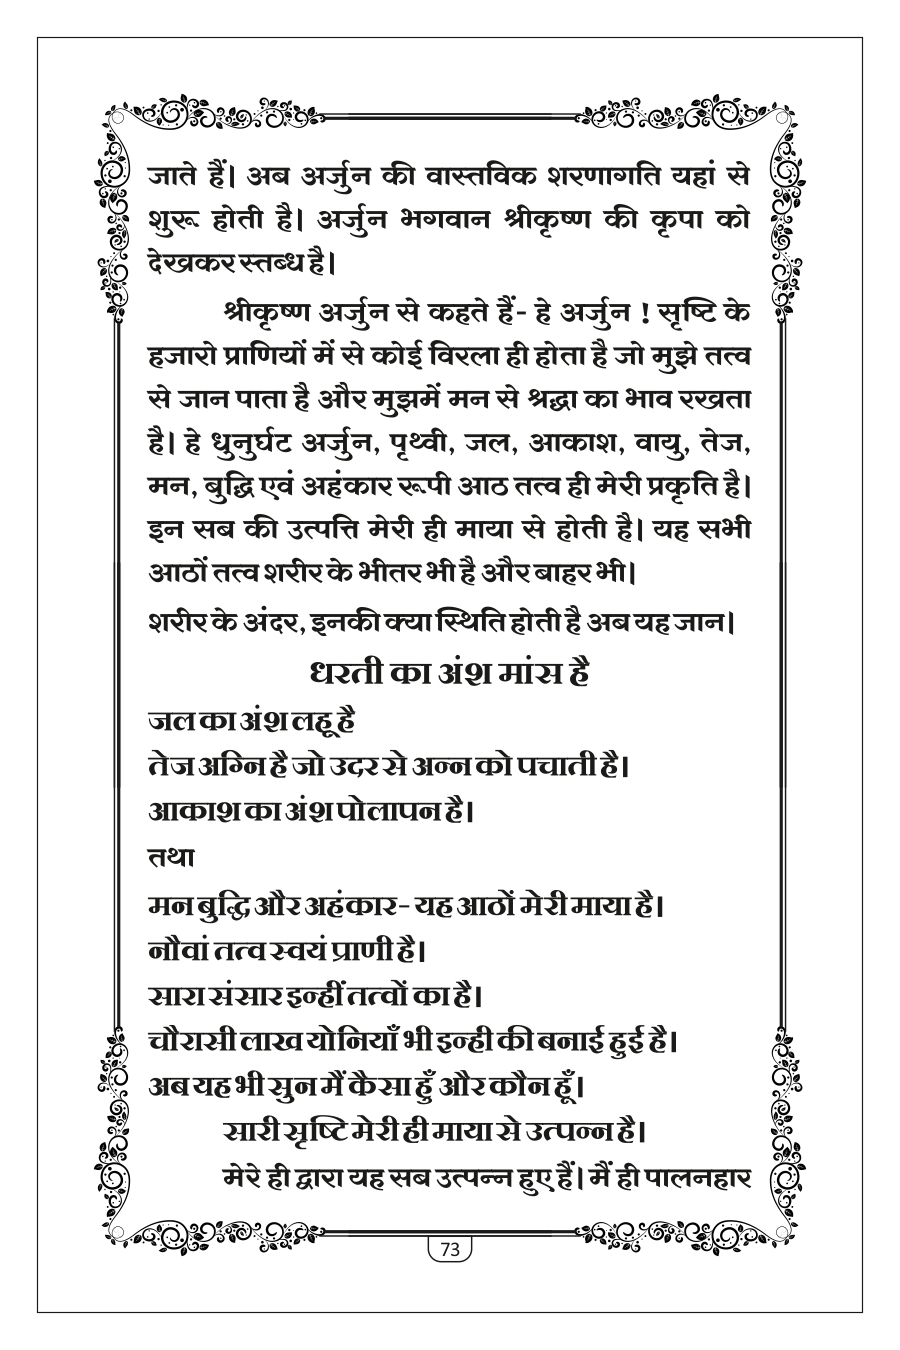 जाते हैं। अब अर्जुन की वास्तविक शरणागति यहां से
शुरू होती है। अर्जुन भगवान श्रीकृष्ण की कृपा को
देखकर स्तब्ध है।
श्रीकृष्ण अर्जुन से कहते हैं- हे अर्जुन ! सृष्टि के
हजारो प्राणियों में से कोई विरला ही होता है जो मुझे तत्व
से जान पाता है और मुझमें मन से श्रद्धा का भाव रखता
है। हे धुनुर्घट अर्जुन, पृथ्वी, जल, आकाश, वायु, तेज,
मन, बुद्धि एवं अहंकार रूपी आठ तत्व ही मेरी प्रकृति है।
इन सब की उत्पत्ति मेरी ही माया से होती है। यह सभी
आठों तत्व शरीर के भीतर भी है और बाहर भी।
शरीर के अंदर, इनकी क्या स्थिति होती है अब यह जान।
धरती का अंश मांस है
जल का अंश लहू है
तेज अग्नि है जो उदर से अन्न को पचाती है।
आकाश का अंश पोलापन है।
तथा
मन बुद्धि और अहंकार- यह आठों मेरी माया है।
नौवां तत्व स्वयं प्राणी है।
सारा संसार इन्हीं तत्वों का है।
चौरासी लाख योनियाँ भी इन्ही की बनाई हुई है।
अब यह भी सुन मैं कैसा हुँ और कौन हूँ।
सारी सृष्टि मेरी ही माया से उत्पन्न है।
मेरे ही द्वारा यह सब उत्पन्न हुए हैं। मैं ही पालनहार
73